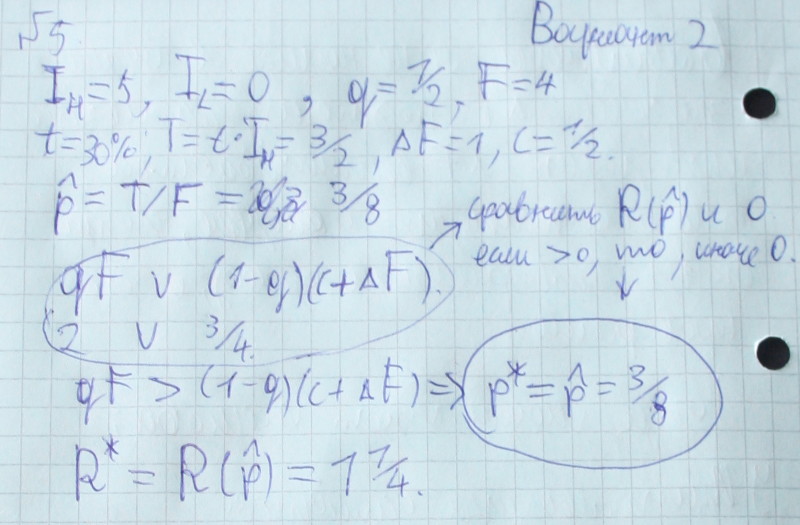 №5. Вариант 2
I_H = 5, I_L = 0, q = 1/2, F = 4
t = 30%, T = t·I_H = 3/2, ΔF = 1, c = 1/2.
p̂ = T/F = 3/8
сравнить R(p̂) и 0.
если >0, то ↓, иначе 0.
qF ∨ (1-q)(c+ΔF).
2 ∨ 3/4.
qF > (1-q)(c+ΔF) => p* = p̂ = 3/8
R* = R(p̂) = 1 1/4.